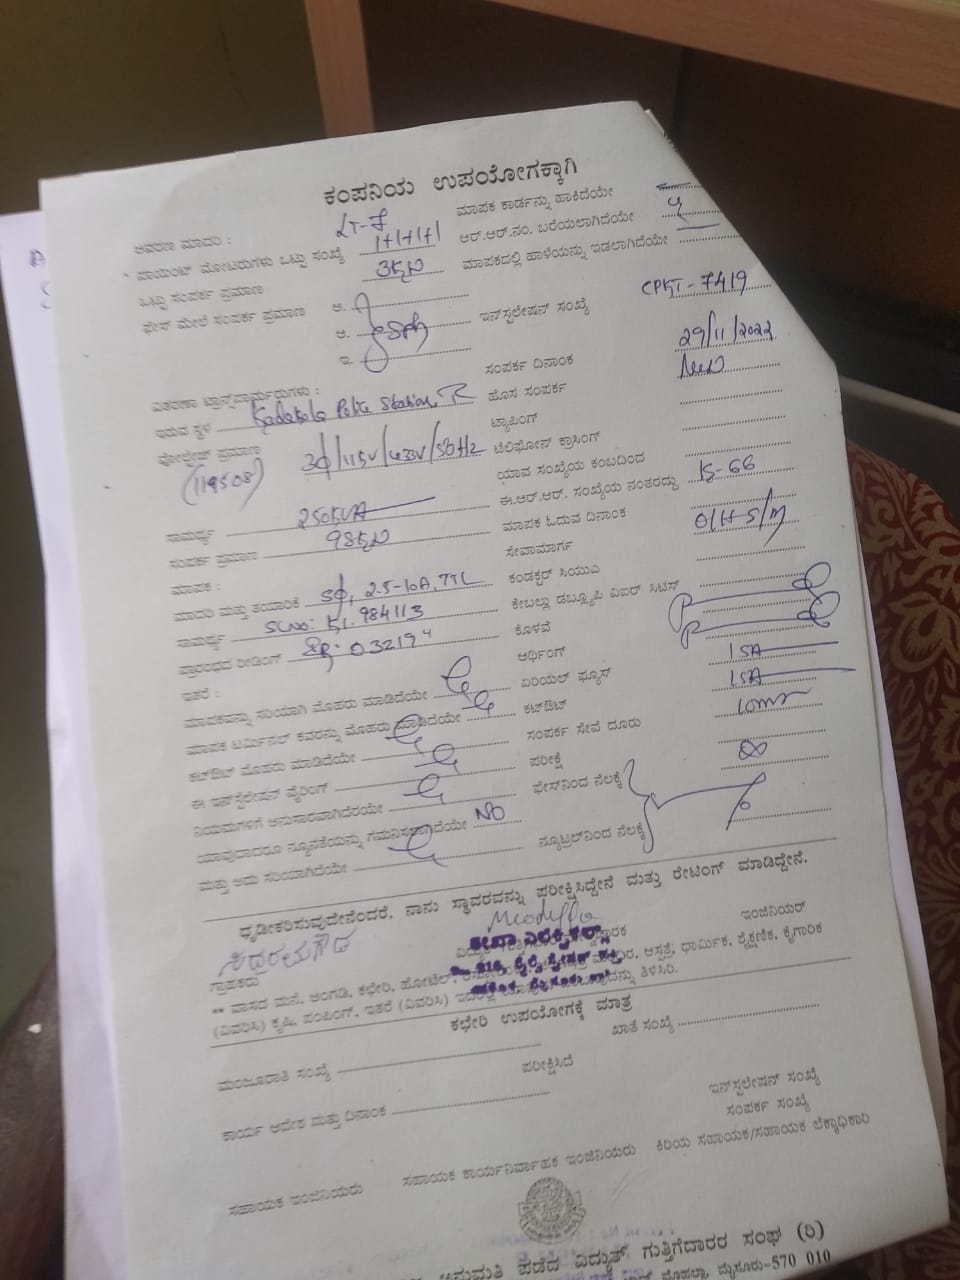 ಕಂಪನಿಯ ಉಪಯೋಗಕ್ಕಾಗಿ
ಆವರಣ ಮಾದರಿ : LT-7 ಮಾಪಕ ಕಾರ್ಡನ್ನು ಹಾಕಿದೆಯೇ
ಪಾಯಿಂಟ್ ಮೋಟರುಗಳು ಒಟ್ಟು ಸಂಖ್ಯೆ 1+1+1+1 ಆರ್.ಆರ್.ನಂ. ಬರೆಯಲಾಗಿದೆಯೇ
ಒಟ್ಟು ಸಂಪರ್ಕ ಪ್ರಮಾಣ 3KW ಮಾಪಕದಲ್ಲಿ ಹಾಳೆಯನ್ನು ಇಡಲಾಗಿದೆಯೇ
ಫೇಸ್ ಮೇಲೆ ಸಂಪರ್ಕ ಪ್ರಮಾಣ ಅ.
ಆ. ಇನ್‌ಸ್ಟಲೇಷನ್ ಸಂಖ್ಯೆ CPKT-7419
ಇ.
ಸಂಪರ್ಕ ದಿನಾಂಕ 29/11/2022
ವಿತರಣಾ ಟ್ರಾನ್ಸ್‌ಫಾರ್ಮರುಗಳು : ಹೊಸ ಸಂಪರ್ಕ New
ಇರುವ ಸ್ಥಳ Kadakola Police Station ಟ್ಯಾಪಿಂಗ್
ವೋಲ್ಟೇಜ್ ಪ್ರಮಾಣ 3Φ/11KV/433V/50Hz ಟೆಲಿಫೋನ್ ಕ್ರಾಸಿಂಗ್
(119508) ಯಾವ ಸಂಖ್ಯೆಯ ಕಂಬದಿಂದ
ಸಾಮರ್ಥ್ಯ 250KVA ಈ.ಆರ್.ಆರ್. ಸಂಖ್ಯೆಯ ನಂತರದ್ದು KS-66
ಸಂಪರ್ಕ ಪ್ರಮಾಣ 98KW ಮಾಪಕ ಓದುವ ದಿನಾಂಕ
ಮಾಪಕ : ಸೇವಾಮಾರ್ಗ O/H S/M
ಮಾದರಿ ಮತ್ತು ತಯಾರಿಕೆ SΦ, 2.5-10A, TTL ಕಂಡಕ್ಟರ್ ಸಿಯುಎ
ಸಾಮರ್ಥ್ಯ SLNO: K1.984113 ಕೇಬಲ್ಲು ಡಬ್ಲ್ಯೂಪಿ ವಿಐಆರ್ ಸಿಟಿಸ್
ಪ್ರಾರಂಭದ ರೀಡಿಂಗ್ 03219 ಕೊಳವೆ
ಇತರೆ : ಆರ್ಥಿಂಗ್
ಮಾಪಕವನ್ನು ಸರಿಯಾಗಿ ಮೊಹರು ಮಾಡಿದೆಯೇ ಏರಿಯಲ್ ಫ್ಯೂಸ್ 15A
ಮಾಪಕ ಟರ್ಮಿನಲ್ ಕವರನ್ನು ಮೊಹರು ಮಾಡಿದೆಯೇ ಕಟ್‌ಔಟ್ 15A
ಕಟ್‌ಔಟ್ ಮೊಹರು ಮಾಡಿದೆಯೇ ಸಂಪರ್ಕ ಸೇವೆ ದೂರು 10mtr
ಈ ಇನ್‌ಸ್ಟಲೇಷನ್ ವೈರಿಂಗ್ ಪರೀಕ್ಷೆ
ನಿಯಮಗಳಿಗೆ ಅನುಸಾರವಾಗಿದೆಯೇ ಫೇಸ್‌ನಿಂದ ನೆಲಕ್ಕೆ
ಯಾವುದಾದರೂ ನ್ಯೂನತೆಯನ್ನು ಗಮನಿಸಲಾಗಿದೆಯೇ No
ಮತ್ತು ಅದು ಸರಿಯಾಗಿದೆಯೇ ನ್ಯೂಟ್ರಲ್‌ನಿಂದ ನೆಲಕ್ಕೆ
ಧೃಡೀಕರಿಸುವುದೇನೆಂದರೆ, ನಾನು ಸ್ಥಾವರವನ್ನು ಪರೀಕ್ಷಿಸಿದ್ದೇನೆ ಮತ್ತು ರೇಟಿಂಗ್ ಮಾಡಿದ್ದೇನೆ.
ಗ್ರಾಹಕರು ಇಂಜಿನಿಯರ್
** ವಾಸದ ಮನೆ, ಅಂಗಡಿ, ಕಛೇರಿ, ಹೋಟೆಲ್, ಆಸ್ಪತ್ರೆ, ಧಾರ್ಮಿಕ, ಶೈಕ್ಷಣಿಕ, ಕೈಗಾರಿಕ
(ವಿವರಿಸಿ) ಕೃಷಿ, ಪಂಪಿಂಗ್, ಇತರೆ (ವಿವರಿಸಿ) ತಿಳಿಸಿರಿ.
ಕಛೇರಿ ಉಪಯೋಗಕ್ಕೆ ಮಾತ್ರ
ಮಂಜೂರಾತಿ ಸಂಖ್ಯೆ ಖಾತೆ ಸಂಖ್ಯೆ
ಪರೀಕ್ಷಿಸಿದೆ
ಕಾರ್ಯ ಆದೇಶ ಮತ್ತು ದಿನಾಂಕ ಇನ್‌ಸ್ಟಲೇಷನ್ ಸಂಖ್ಯೆ
ಸಂಪರ್ಕ ಸಂಖ್ಯೆ
ಸಹಾಯಕ ಇಂಜಿನಿಯರು ಸಹಾಯಕ ಕಾರ್ಯನಿರ್ವಾಹಕ ಇಂಜಿನಿಯರು ಕಿರಿಯ ಸಹಾಯಕ/ಸಹಾಯಕ ಲೆಕ್ಕಾಧಿಕಾರಿ
ಅನುಮತಿ ಪಡೆದ ವಿದ್ಯುತ್ ಗುತ್ತಿಗೆದಾರರ ಸಂಘ (ರಿ)
ಮೊಹಲ್ಲಾ, ಮೈಸೂರು-570 010